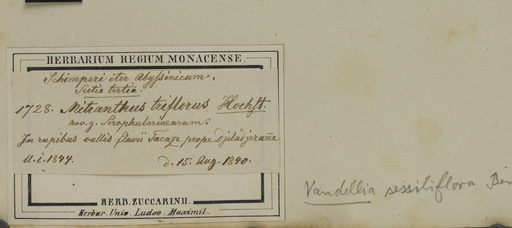 HERBARIUM REGIUM MONACENSE.
Schimperi iter Abyssinicum.
Sectio tertia.
1728. Mitranthus triflorus Hochst.
nov. g. Scrophularinearum.
In rupibus vallis fluvii Tacaze prope Djeladjeranne
U. i. 1844. d. 15. Aug. 1840.
HERB. ZUCCARINII.
Herbar. Univ. Ludov. Maximil.
Vandellia sessiliflora Ben